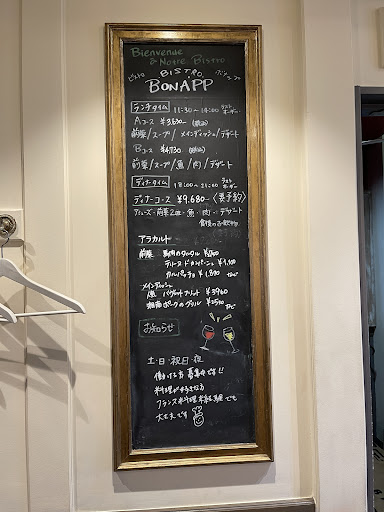 Bienvenue
à Notre Bistro
ビストロ BISTRO ボナップ
BON APP
ランチタイム 11:30〜14:00 ラストオーダー
Aコース ¥3,630- (税込)
前菜/スープ/メインディッシュ/デザート
Bコース ¥4,730 (税込)
前菜/スープ/魚/肉/デザート
ディナータイム 18:00〜21:00 ラストオーダー
ディナーコース ¥9,680- 〈要予約〉
アミューズ・前菜2種・魚・肉・デザート
食後のお飲み物
アラカルト
前菜
テリーヌ ド カンパーニュ
カルパッチョ など
メインディッシュ
魚 ¥3960
湘南ポークのグリル など
お知らせ
土・日・祝日・夜
働ける方 募集中です!!
料理が好きな方
フランス料理未経験でも
大丈夫です